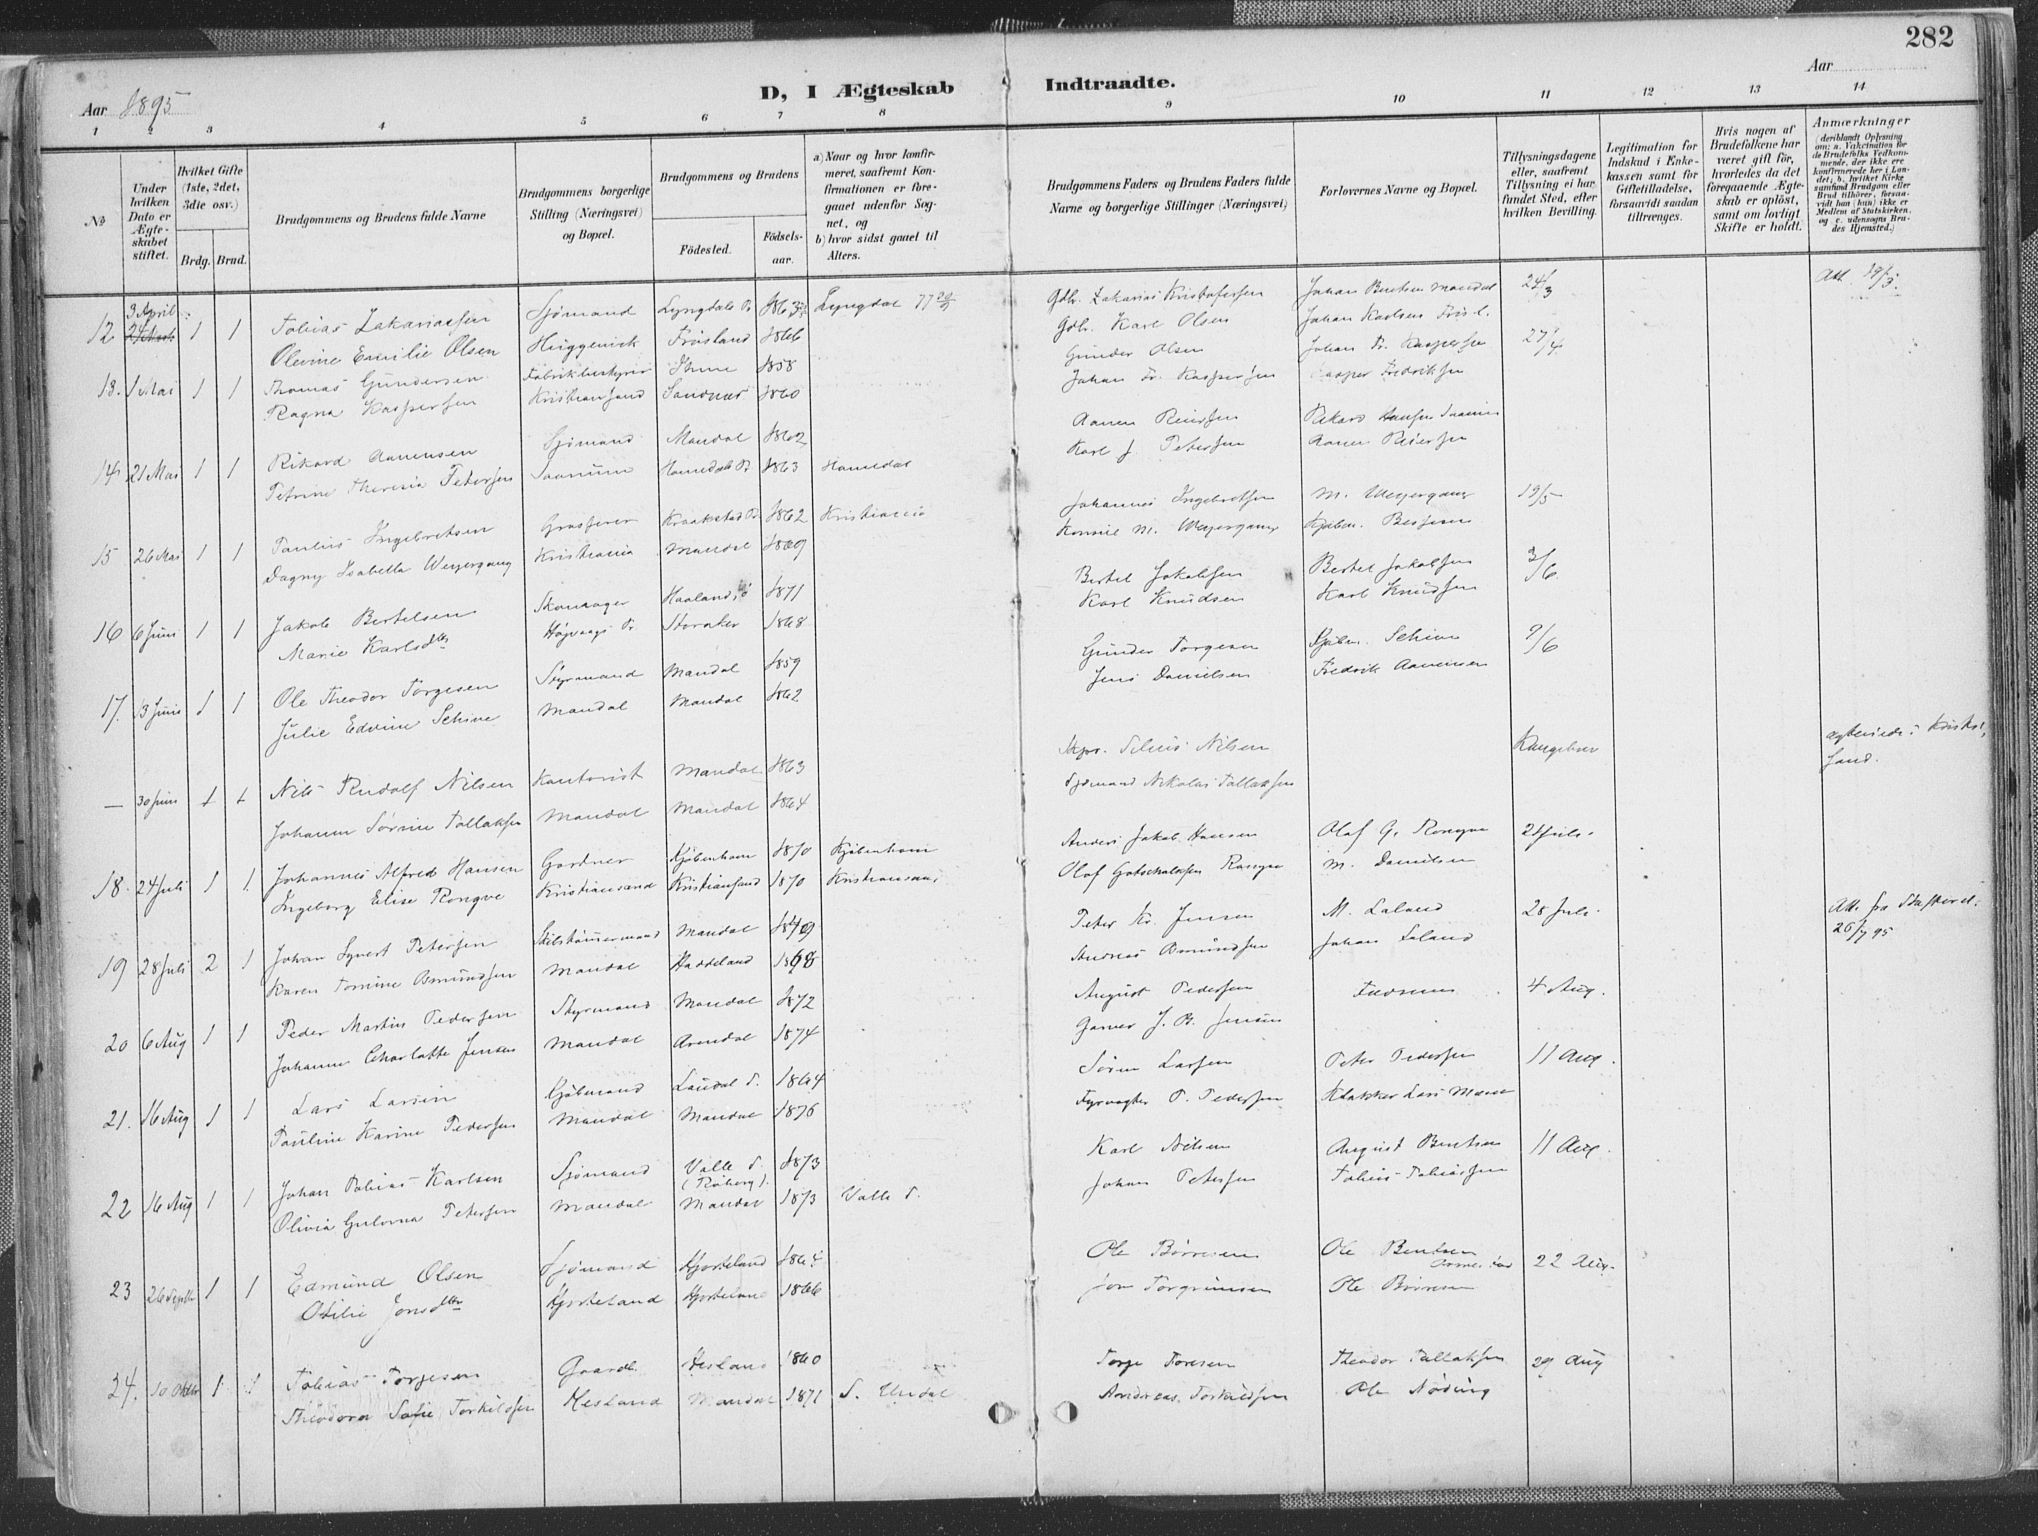 282
D, I Ægteskab Indtraadte.
Aar 1895
Aar
1 2 3 4 5 6 7 8 9 10 11 12 13 14
No
Under hvilken Dato er Ægteskabet stiftet.
Hvilket Gifte (1ste, 2det, 3die osv.)
Brdg. Brud.
Brudgommens og Brudens fulde Navne
Brudgommens borgerlige Stilling (Næringsvei) og Bopæl.
Brudgommens og Brudens
Födested.
Födselsaar.
a) Naar og hvor konfirmeret, saafremt Konfirmationen er foregaaet udenfor Sognet, og
b) hvor sidst gaaet til Alters.
Brudgommens Faders og Brudens Faders fulde Navne og borgerlige Stillinger (Næringsvei)
Forlovernes Navne og Bopæl.
Tillysningsdagene eller, saafremt Tillysning ei har fundet Sted, efter hvilken Bevilling.
Legitimation for Indskud i Enkekassen samt for Giftetilladelse, forsaavidt saadan tiltrænges.
Hvis nogen af Brudefolkene har været gift før, hvorledes da det foregaaende Ægteskab er oplöst, samt om lovligt Skifte er holdt.
Anmærkninger (deriblandt Oplysning om: a. Vakcination for de Brudefolks Vedkommende, der ikke ere konfirmerede her i Landet; b. hvilket Kirkesamfund Brudgom eller Brud tilhörer, forsaavidt han (hun) ikke er Medlem af Statskirken, og c. udensogns Brudes Hjemsted.)
12 3 April 1 1 Tobias Zakariassen Sjømand Lyngdals P. 1863 Lyngdal 77 Gdbr. Zakarias Kristofersen Johan Bentsen Mandal 24/3 Att. 19/3.
Olevine Emilie Olsen Frøisland 1866 Gdbr. Karl Olsen Johan Karlsen
13. 1 Mai 1 1 Thomas Gundersen Fabrikbestyrer 1858 Gunder Olsen Johan Fr. Kaspersen 27/4
Ragna Kaspersen Kristiansand Sandnæs 1860 Johan Fr. Kaspersen Kasper Fredriksen
14 21 Mai 1 1 Rikard Aanensen Sjømand Mandal 1862 Aanen Reiersen Rikard Hansen
Petrine Theresia Petersen Saanum 1863 Karl J. Petersen Aanen Reiersen
15 26 Mai 1 1 Paulus Ingebretsen Grosserer Kraakstad P. 1862 Kristiania Johannes Ingebretsen M. Weyergang 19/5
Dagny Isabella Weyergang Kristiania Mandal 1869 Konsul M. Weyergang Kjøbm.
16 6 Juni 1 1 Jakob Bertelsen Skomager 1871 Bertel Jakobsen Bertel Jakobsen 3/6
Marie Karlsdtr Høivaags P. Storaker 1868 Karl Knudsen Karl Knudsen
17. 13 Juni 1 1 Ole Theodor Torgesen Styrmand Mandal 1859 Gunder Torgesen Kjøbm. Schive 9/6
Julie Edvine Schive Mandal Mandal 1862 Jens Danielsen Fredrik Aanensen
— 30 Juni 1 1 Nils Rudolf Nilsen Kontorist Mandal 1863 Skpr. Nilsen Kongebrev
Johanne Sørine Tallaksen Mandal Mandal 1864 Sjømand Nikolai Tallaksen
18. 24 Juli 1 1 Johannes Alfred Hansen Gartner Kjøbenhavn 1870 Kjøbenhavn Anders Jakob Hansen Olaf G. Rongve 21 Juli.
Ingeborg Elise Rongve Kristiansand Kristiansand 1870 Kristiansand Olaf Gotschalksen Rongve M. Danielsen
19 28 Juli 2 1 Johan Syvert Petersen Skibstømmermand Mandal 1849 Peter Kr. Jensen M. Laland 28 Juli.
Karen Tomine Asmundsen Mandal Haddeland 1868 Andreas Asmundsen Johan Laland
26/7 95
20 6 Aug 1 1 Peder Martin Pedersen Styrmand Mandal 1872 August Pedersen Fædrene 4 Aug.
Johanne Charlotte Jensen Mandal Arendal 1874 J. B. Jensen
21. 16 Aug 1 1 Lars Larsen Kjøbmand Laudal S. 1864 Søren Larsen Peter Pedersen 11 Aug.
Pauline Karine Pedersen Mandal Mandal 1876 Fyrvogter P. Pedersen
22 16 Aug 1 1 Johan Tobias Karlsen Sjømand Valle S. 1873 Karl Nilsen August Bentsen 11 Aug.
Olivia Gulovna Petersen Mandal Mandal 1873 Valle S. Johan Petersen Tobias Tobiassen
23 26 Septbr 1 1 Edmund Olsen Sjømand Hjorteland 1864 Ole Børresen Ole Bentsen 22 Aug.
Otilie Jonsdtr Hjorteland Hjorteland 1866 Jon Torgrimsen Ole Børresen
24. 10 Oktbr 1 1 Tobias Torgesen Gaardb. Hesland 1860 Torje Toresen Theodor Tallaksen 29 Aug
Theodora Sofie Torkildsen Hesland Mandal 1871 S. Undal Andreas Torkildsen Ole Nøding